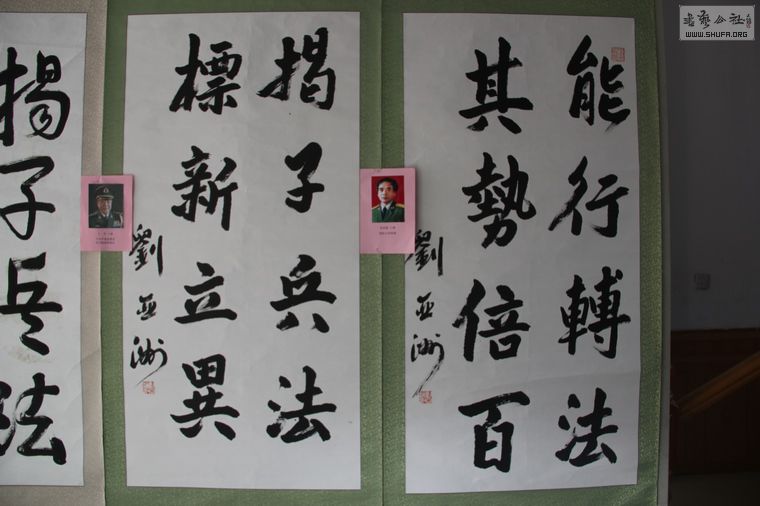 能行轉法
其勢倍百
劉亚洲
揭子兵法
標新立異
劉亚洲
揭子兵法
书艺公社
WWW.SHUFA.ORG